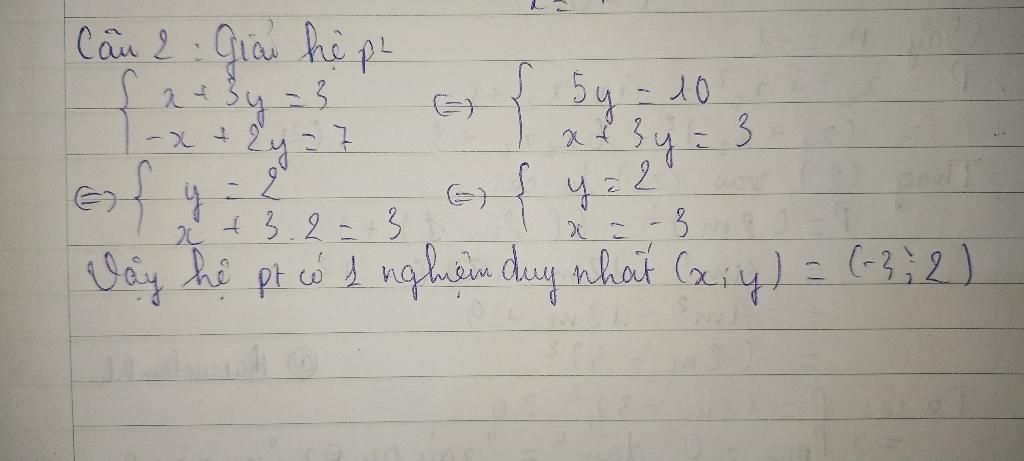 Câu 2: Giải hệ pt
x + 3y = 3 <=> 5y = 10
-x + 2y = 7 x + 3y = 3
<=> y = 2 <=> y = 2
x + 3.2 = 3 x = -3
Vậy hệ pt có 1 nghiệm duy nhất (x; y) = (-3; 2)